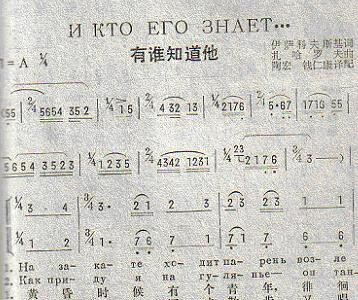 И КТО ЕГО ЗНАЕТ...
有谁知道他
伊萨科夫斯基词
扎哈罗夫曲
陶宏 钱仁康译配
= A 1/4
55 | 2/4 5654 35 2 | 1/4 1 5 | 2/4 4 32 13 | 1/4 2176 | 2/4 5·67 | 1710 55
5654 3523 | 1/4 1235 | 2/4 4342 1231 | 1/4 23 2176 | 2/4 3 — )
1/4 3 · 4 | 3/4 3 · 1 | 2 1 2 | 3 3 1 | 2
1/4 1 · 2 | 3/4 1 · 1 | 7 6 7 | 1 1 6 | 7
1. На за- ка- те хо- дит па- рень воз- ле
2. Как при- ду я на гу- лянь- е— он тан-
黄 昏 时 候 有 个 青 年, 徘 徊